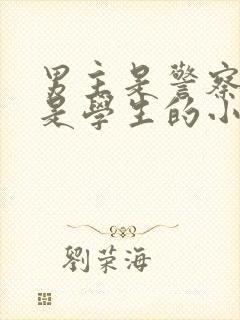 男主是警察
是學生的小
劉荣海